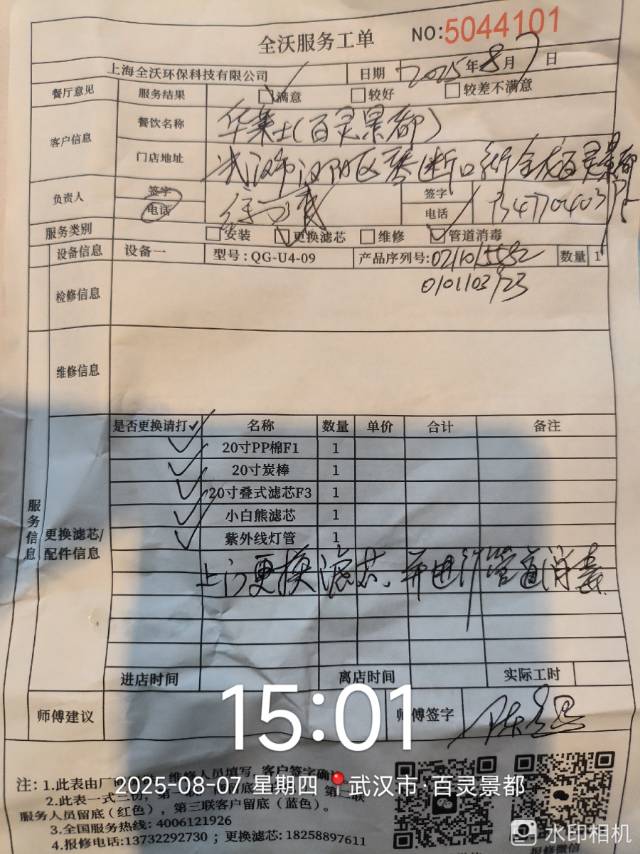 全沃服务工单 NO:5044101
上海全沃环保科技有限公司 日期 2025年8月7日
餐厅意见 服务结果 满意 较好 较差不满意
客户信息
餐饮名称 华莱士(百灵景都)
门店地址 武汉市汉阳区 百灵景都
负责人 签字 签字
电话 电话
服务类别 安装 更换滤芯 维修 管道消毒
设备信息 设备一 型号:QG-U4-09 产品序列号: 数量 1
检修信息
维修信息
服务信息
更换滤芯/
配件信息
是否更换请打✓ 名称 数量 单价 合计 备注
✓ 20寸PP棉F1 1
✓ 20寸炭棒 1
✓ 20寸叠式滤芯F3 1
✓ 小白熊滤芯 1
✓ 紫外线灯管 1
上门更换滤芯、并进行管道消毒
进店时间 离店时间 实际工时
师傅建议 师傅签字
15:01
2025-08-07 星期四 武汉市·百灵景都
注:1.此表由厂 维修人员填写,客户签字确
2.此表一式三份,第
服务人员留底(红色),第三联客户留底(蓝色)。
3.全国服务热线:4006121926
4.报修电话:13732292730;更换滤芯:18258897611
水印相机